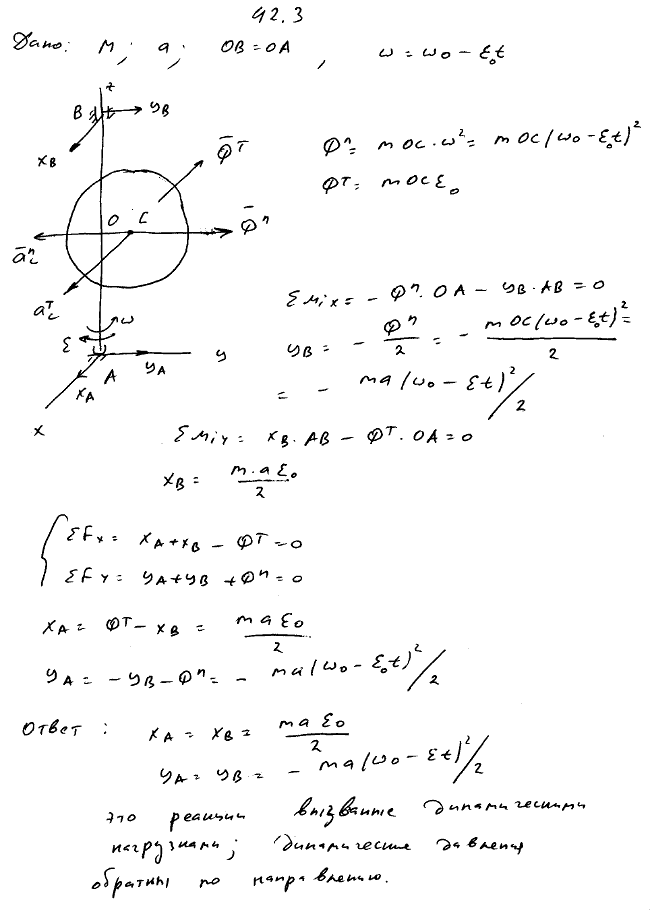 42.3
Дано: M; a; OB=OA, ω=ω₀-ε₀t
z
B y_B
x_B
Φ̄^τ
Φ^n = m OC·ω² = m OC(ω₀-ε₀t)²
Φ^τ = m OC ε₀
O C Φ̄^n
ā_c^n
a_c^τ
ε ω
A y_A y
x_A
x
ΣM_ix = -Φ^n·OA - y_B·AB = 0
y_B = -Φ^n/2 = -mOC(ω₀-ε₀t)²/2 =
= -ma(ω₀-εt)²/2
ΣM_iy = x_B·AB - Φ^τ·OA = 0
x_B = m·aε₀/2
ΣF_x = x_A+x_B - Φ^τ = 0
ΣF_y = y_A+y_B+Φ^n = 0
x_A = Φ^τ - x_B = maε₀/2
y_A = -y_B-Φ^n = -ma(ω₀-ε₀t)²/2
Ответ: x_A = x_B = maε₀/2
y_A = y_B = -ma(ω₀-εt)²/2
это реакции вызванные динамическими
нагрузками; динамические давления
обратны по направлению.